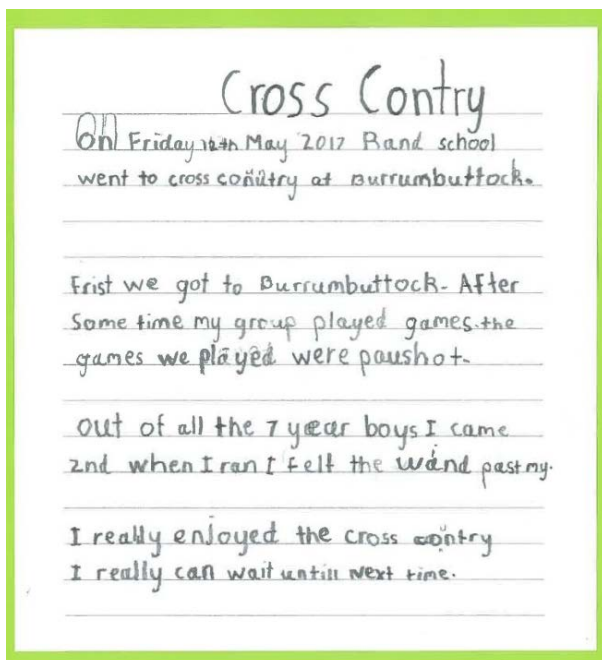 Cross Contry
On Friday 12th May 2017 Rand school
went to cross country at Burrumbuttock.
Frist we got to Burrumbuttock. After
Some time my group played games. the
games we played were paushot.
out of all the 7 year boys I came
2nd when I ran I felt the wand past my.
I really enjoyed the cross contry
I really can wait untill Next time.